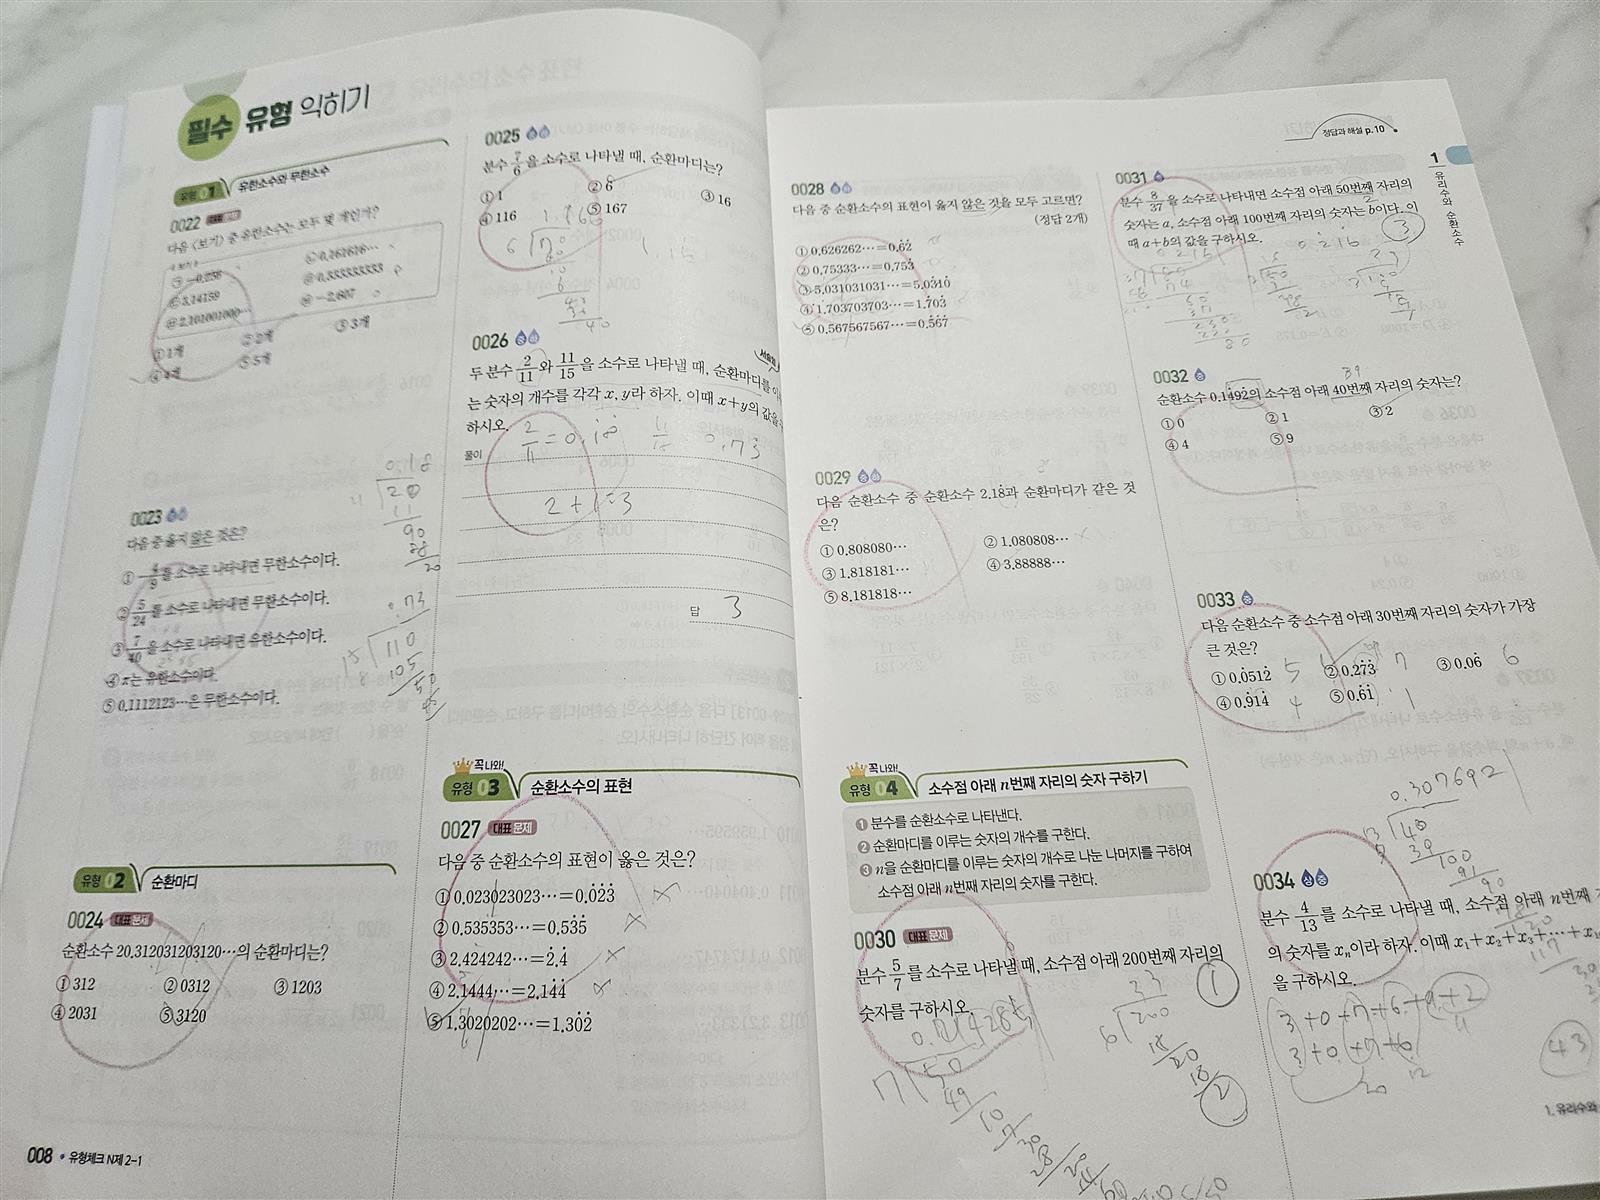 필수 유형 익히기
유형 01 유한소수와 무한소수
0022 대표 문제
다음 〈보기〉 중 유한소수는 모두 몇 개인가?
보기
㉠ -0.256 ㉡ 0.161616…
㉢ 3.14159 ㉣ 0.333333333
㉤ 2.101001000… ㉥ -2.607
① 1개 ② 2개 ③ 3개
④ 4개 ⑤ 5개
0023
다음 중 옳지 않은 것은?
① 4/9를 소수로 나타내면 무한소수이다.
② 5/24를 소수로 나타내면 무한소수이다.
③ 7/40을 소수로 나타내면 유한소수이다.
④ π는 유한소수이다.
⑤ 0.1112123…은 무한소수이다.
0.18
11 20
11
90
88
20
0.73
15 110
105
50
45
유형 02 순환마디
0024 대표 문제
순환소수 20.312031203120…의 순환마디는?
① 312 ② 0312 ③ 1203
④ 2031 ⑤ 3120
008 • 유형체크 N제 2-1
0025
분수 7/6을 소수로 나타낼 때, 순환마디는?
① 1 ② 6 ③ 16
④ 116 ⑤ 167
0026
두 분수 2/11와 11/15을 소수로 나타낼 때, 순환마디를
는 숫자의 개수를 각각 x, y라 하자. 이때 x+y의 값을
하시오.
풀이
2/11 = 0.1̇8̇ 11/15 0.73̇
2+1=3
답 3
꼭 나와!
유형 03 순환소수의 표현
0027 대표 문제
다음 중 순환소수의 표현이 옳은 것은?
① 0.023023023…=0.0̇2̇3̇
② 0.535353…=0.53̇5̇
③ 2.424242…=2̇.4̇
④ 2.1444…=2.14̇4̇
⑤ 1.3020202…=1.30̇2̇
0028
다음 중 순환소수의 표현이 옳지 않은 것을 모두 고르면?
(정답 2개)
① 0.626262…=0.6̇2̇
② 0.75333…=0.753̇
③ 5.031031031…=5.0̇31̇0̇
④ 1.703703703…=1.7̇03̇
⑤ 0.567567567…=0.5̇6̇7̇
0029
다음 순환소수 중 순환소수 2.1̇8̇과 순환마디가 같은 것
은?
① 0.808080…
② 1.080808…
③ 1.818181…
④ 3.88888…
⑤ 8.181818…
꼭 나와!
유형 04 소수점 아래 n번째 자리의 숫자 구하기
❶ 분수를 순환소수로 나타낸다.
❷ 순환마디를 이루는 숫자의 개수를 구한다.
❸ n을 순환마디를 이루는 숫자의 개수로 나눈 나머지를 구하여
소수점 아래 n번째 자리의 숫자를 구한다.
0030 대표 문제
분수 5/7를 소수로 나타낼 때, 소수점 아래 200번째 자리의
숫자를 구하시오.
1
33
6 200
18
20
18
2
0.714285
7 50
49
10
7
30
28
20
정답과 해설 p.10
1 유리수와 순환소수
0031
분수 8/37을 소수로 나타내면 소수점 아래 50번째 자리의
숫자는 a, 소수점 아래 100번째 자리의 숫자는 b이다. 이
때 a+b의 값을 구하시오.
3
0.216
0032
순환소수 0.14̇92̇의 소수점 아래 40번째 자리의 숫자는?
39
① 0 ② 1 ③ 2
④ 4 ⑤ 9
0033
다음 순환소수 중 소수점 아래 30번째 자리의 숫자가 가장
큰 것은?
① 0.0̇512̇ 5 ② 0.27̇3̇ 7 ③ 0.06̇ 6
④ 0.9̇14̇ 4 ⑤ 0.6̇1̇ 1
0.307692
13 40
39
100
91
90
0034 상 중
분수 4/13를 소수로 나타낼 때, 소수점 아래 n번째
의 숫자를 xₙ이라 하자. 이때 x₁+x₂+x₃+…+
을 구하시오.
3+0+7+6+9+2
3+0+7+6
20 12
43
1. 유리수와